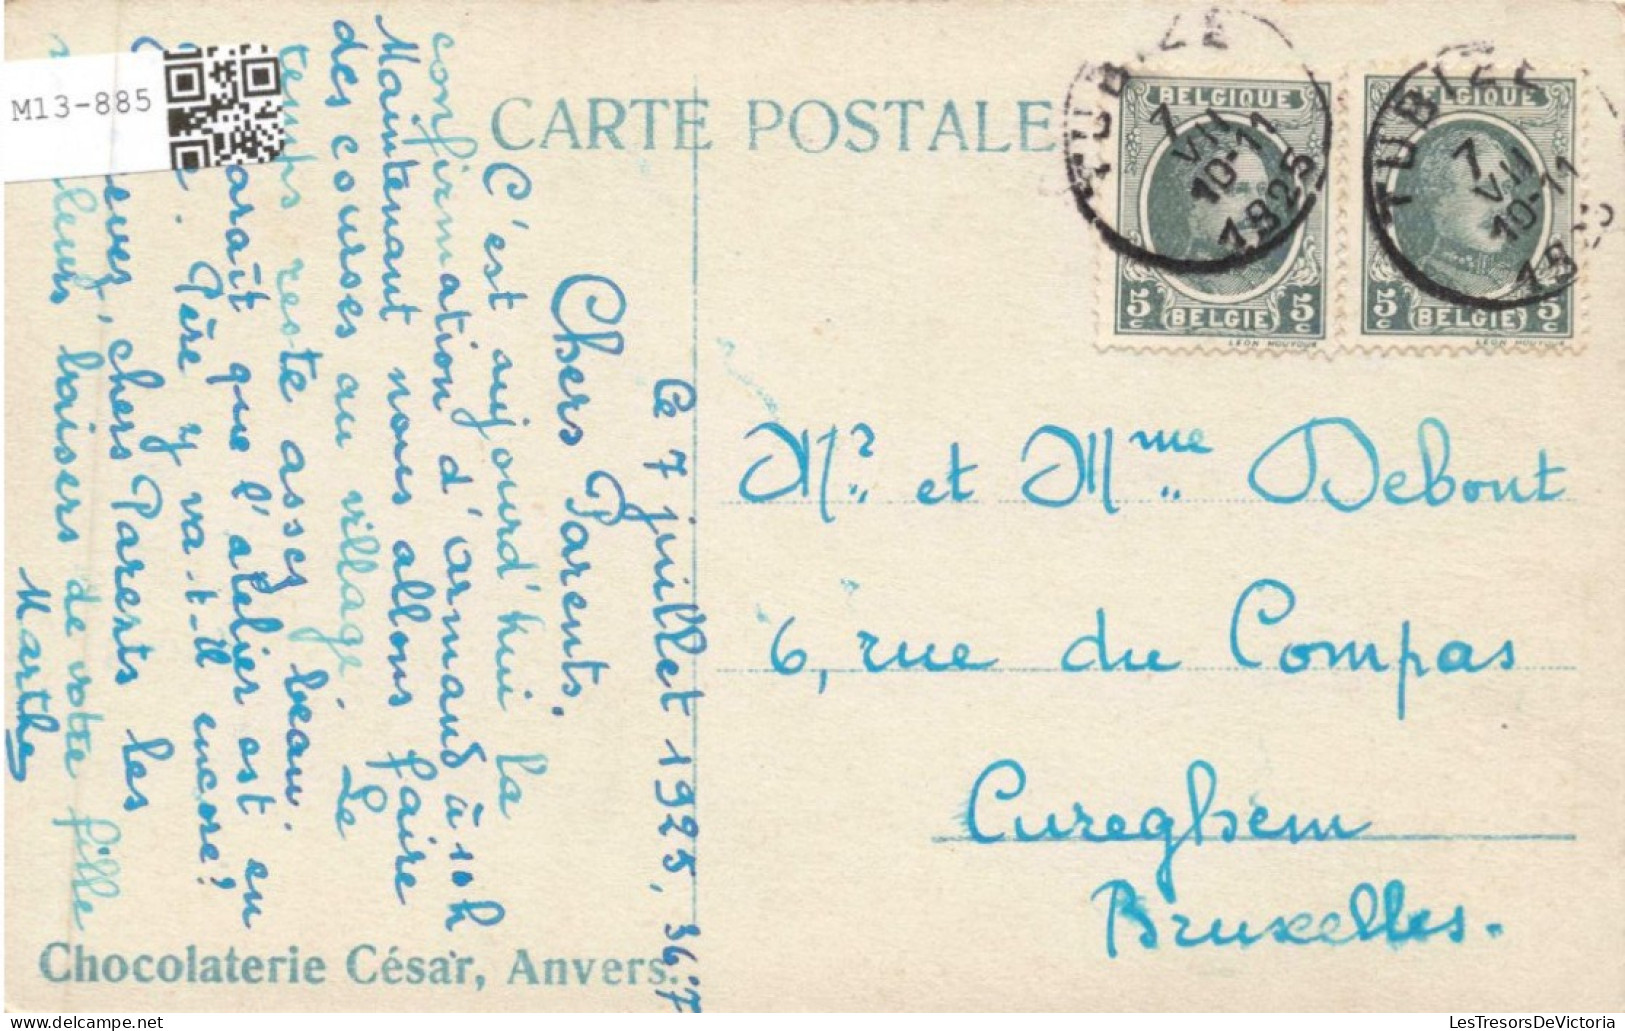 M13-885
CARTE POSTALE
TUBIZE
7
VII
10-11
1925
TUBIZE
7
VII
10-11
BELGIQUE
5c 5c
BELGIE
LEON HOUYOUX
BELGIQUE
5c 5c
BELGIE
LEON HOUYOUX
Ce 7 juillet 1925,
Chers Parents,
C'est aujourd'hui la
confirmation d'Armand à 10 h.
Maintenant nous allons faire
des courses au village. Le
temps reste assez beau.
paraît que l'atelier est en
Père y va-t-il encore?
chers Parents les
baisers de votre fille
Marthe
Mr. et Mme Debout
6, rue du Compas
Cureghem
Bruxelles.
Chocolaterie César, Anvers.
LesTresorsDeVictoria